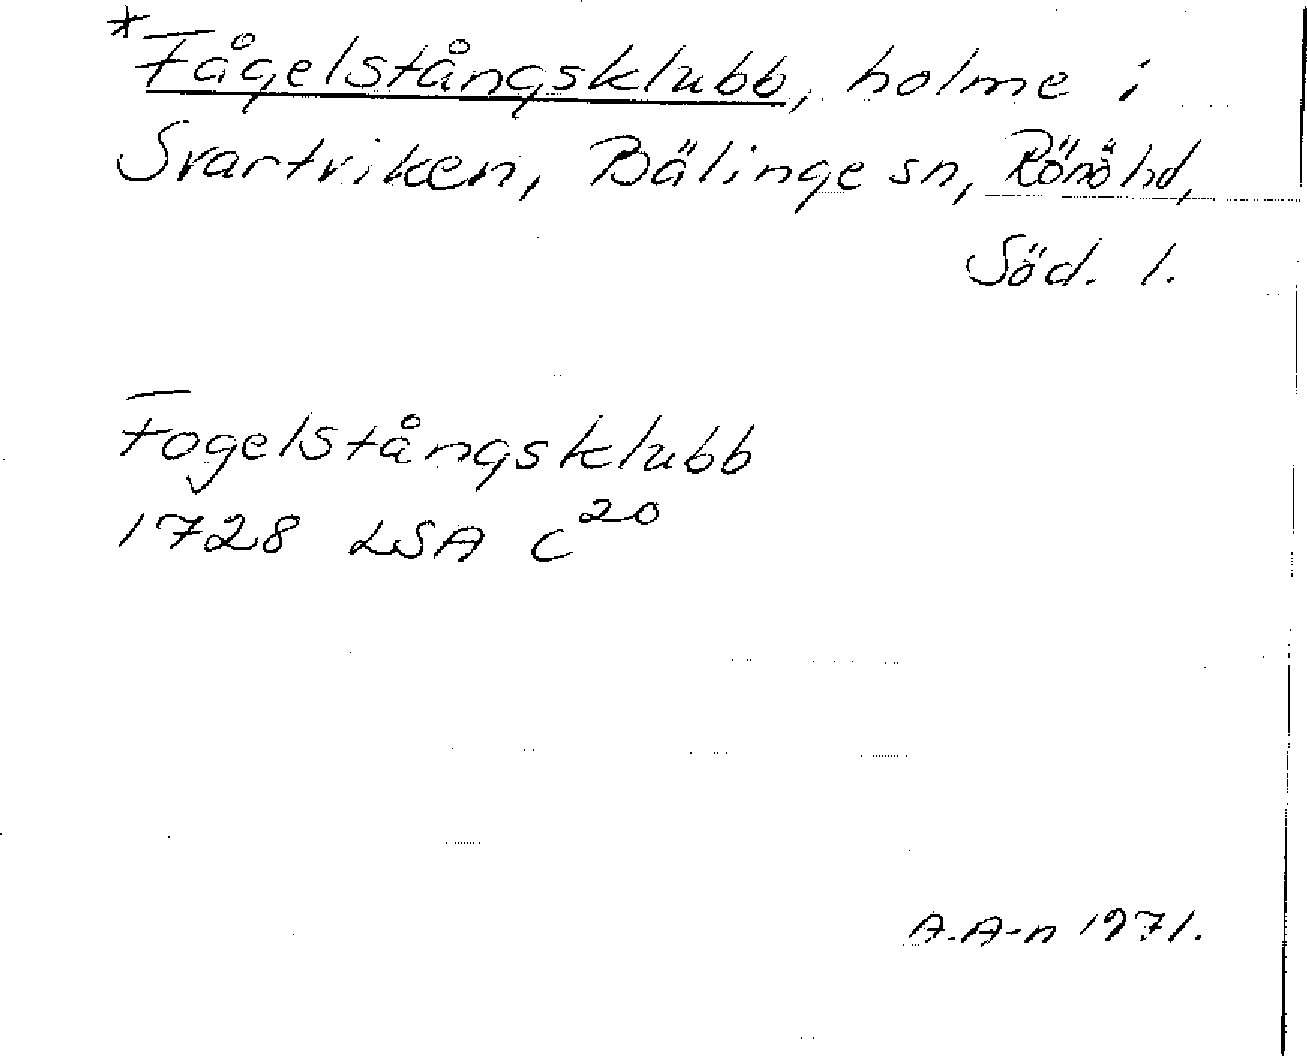 *Fågelstångsklubb, holme i
Svartviken, Bälinge sn, Rönö hd,
Söd. l.
Fogelstångsklubb
1728 LSA C20
A.A-n 1971.